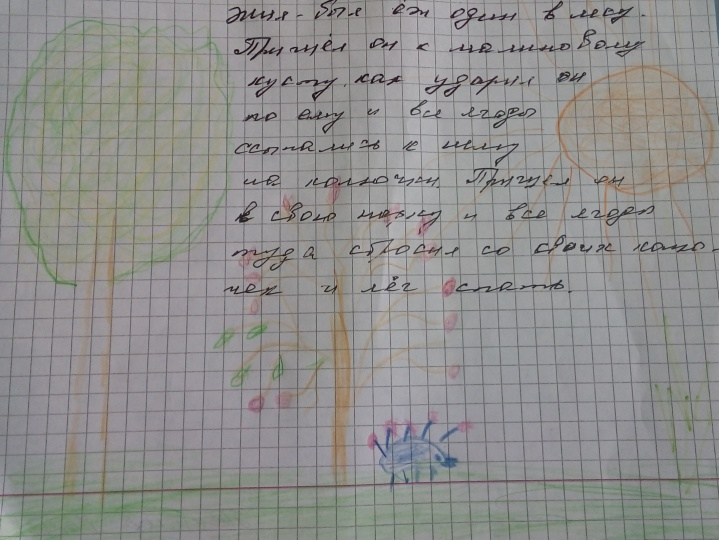 Жил-был ёж один в лесу.
Пришёл он к малиновому
кусту, как ударил он
по ему и все ягоды
ссыпались к нему
на колючки. Пришёл он
в свою норку и все ягоды
туда сбросил со своих колю-
чек и лёг спать.